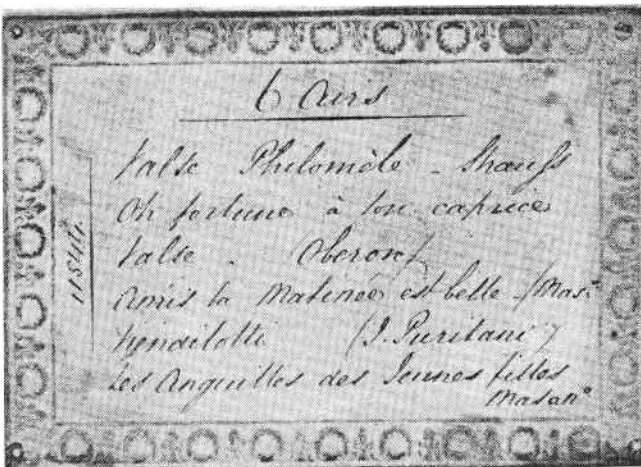 6 Airs
Valse Philomèle - Strauss
Oh fortune à ton caprice
Valse . Oberon
Amis la Matinée est belle - (Mas:
(I. Puritani)
Les Anguilles des Jeunes filles
Masanº